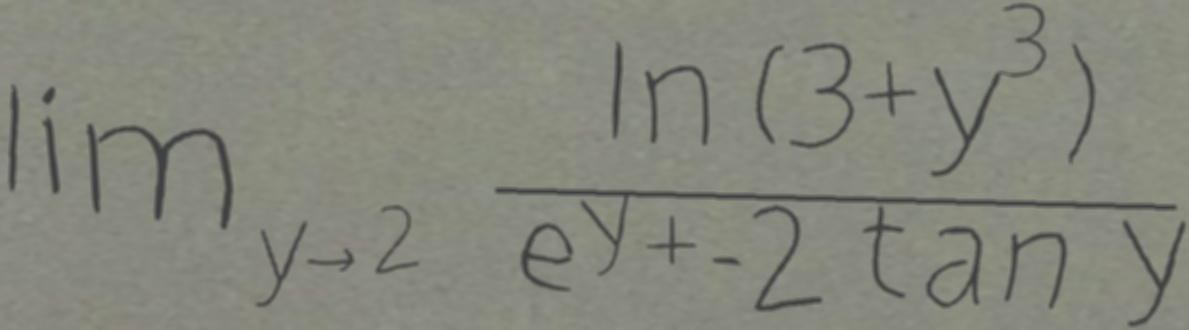 \lim_{y \to 2} \frac{\ln(3+y^3)}{e^y+-2\tan y}